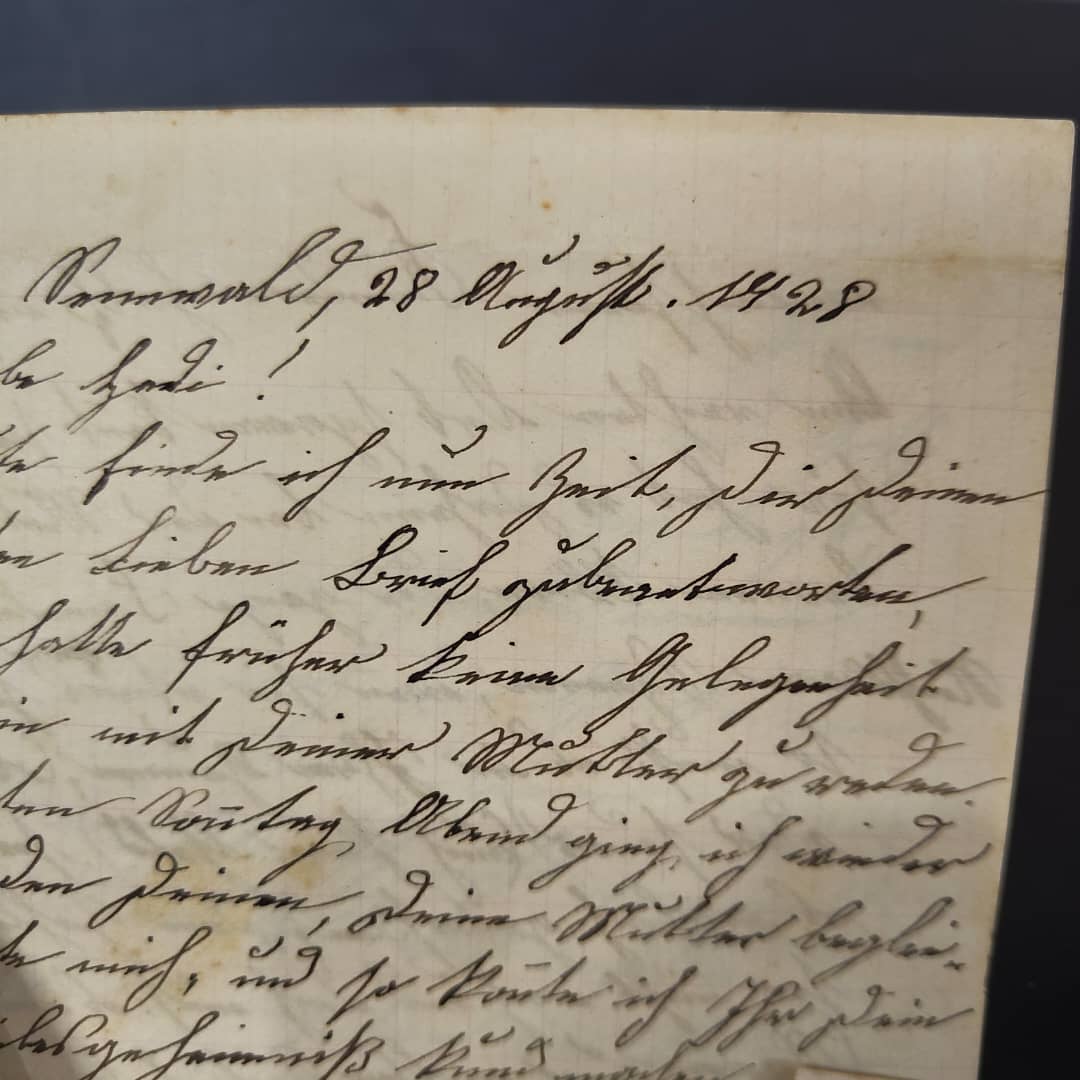 Sennwald, 28 August. 1928
be Hedi!
te finde ich nun Zeit, Dir Deinen
en lieben Brief zubeantworten,
hatte früher keine Gelegenheit
in mit Deiner Mutter zu reden.
ten Soñtag Abend ging ich wieder
den Deinen, Deine Mutter beglei-
te mich, und so koñte ich Ihr Dein
besgeheimniß kund machen